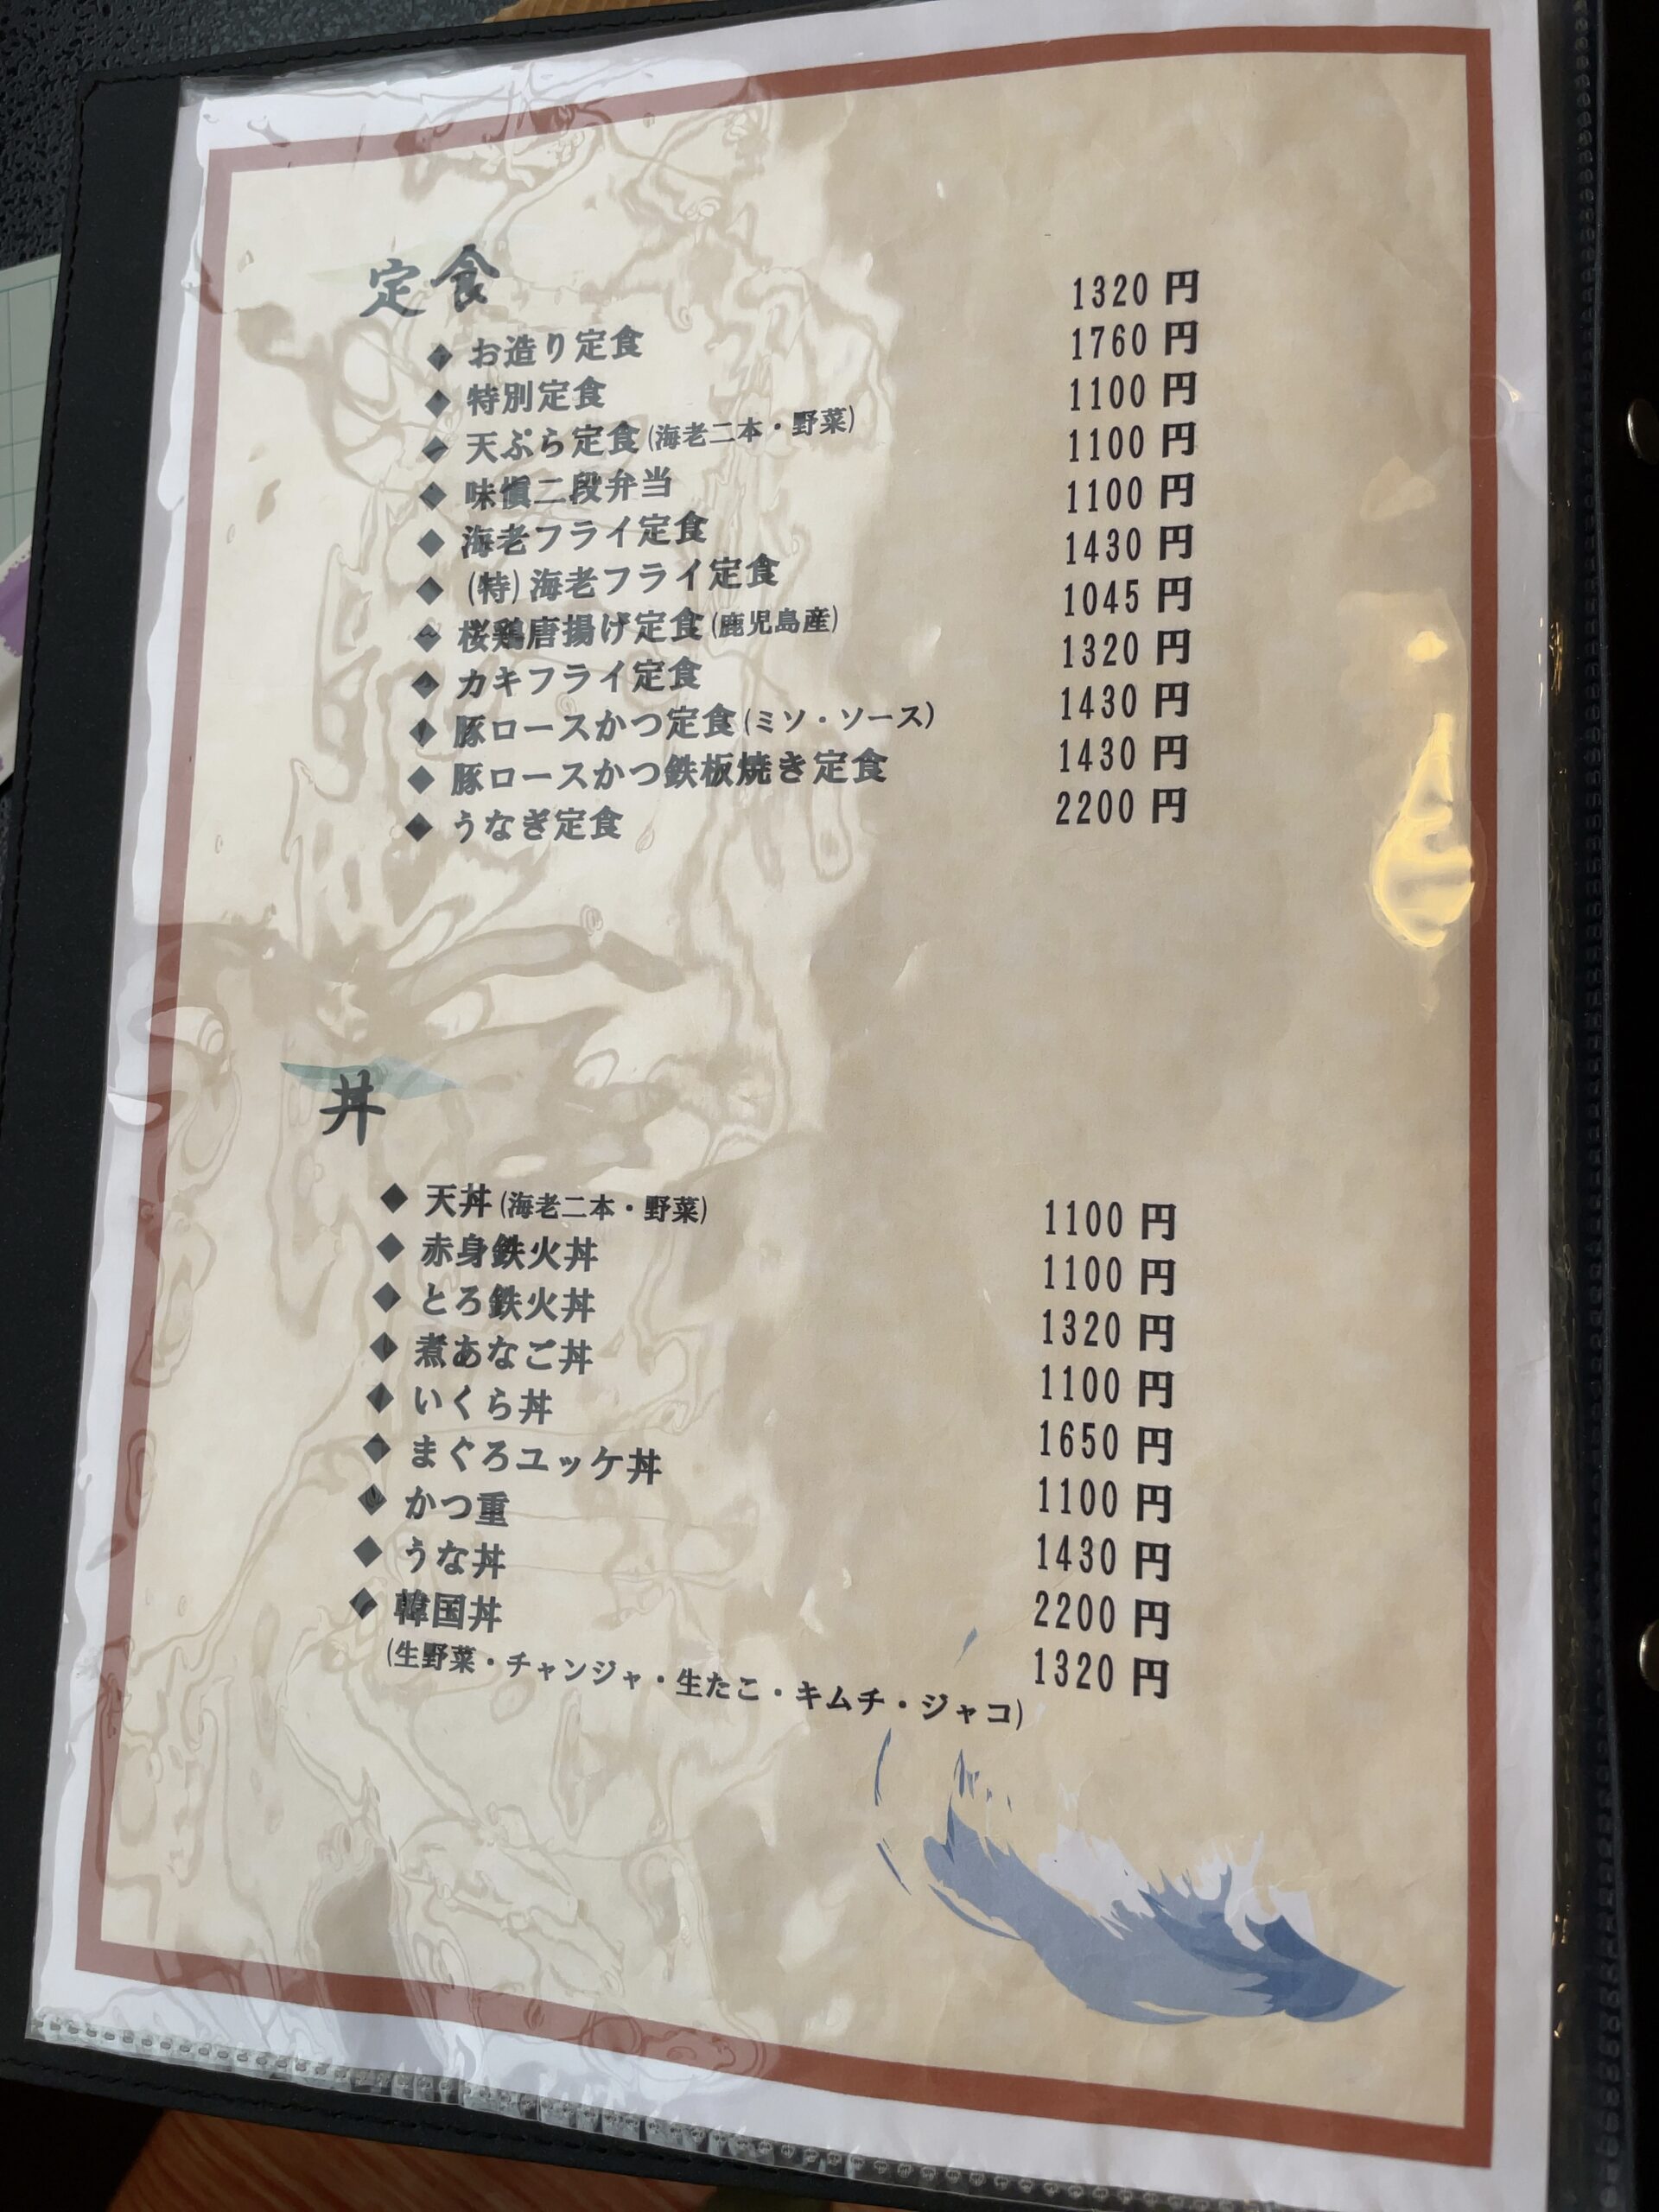 定食
◆ お造り定食 1320 円
◆ 特別定食 1760 円
◆ 天ぷら定食(海老二本・野菜) 1100 円
◆ 味愼二段弁当 1100 円
◆ 海老フライ定食 1100 円
◆ (特)海老フライ定食 1430 円
◆ 桜鶏唐揚げ定食(鹿児島産) 1045 円
◆ カキフライ定食 1320 円
◆ 豚ロースかつ定食(ミソ・ソース) 1430 円
◆ 豚ロースかつ鉄板焼き定食 1430 円
◆ うなぎ定食 2200 円
丼
◆ 天丼(海老二本・野菜) 1100 円
◆ 赤身鉄火丼 1100 円
◆ とろ鉄火丼 1320 円
◆ 煮あなご丼 1100 円
◆ いくら丼 1650 円
◆ まぐろユッケ丼 1100 円
◆ かつ重 1430 円
◆ うな丼 2200 円
◆ 韓国丼 1320 円
(生野菜・チャンジャ・生たこ・キムチ・ジャコ)